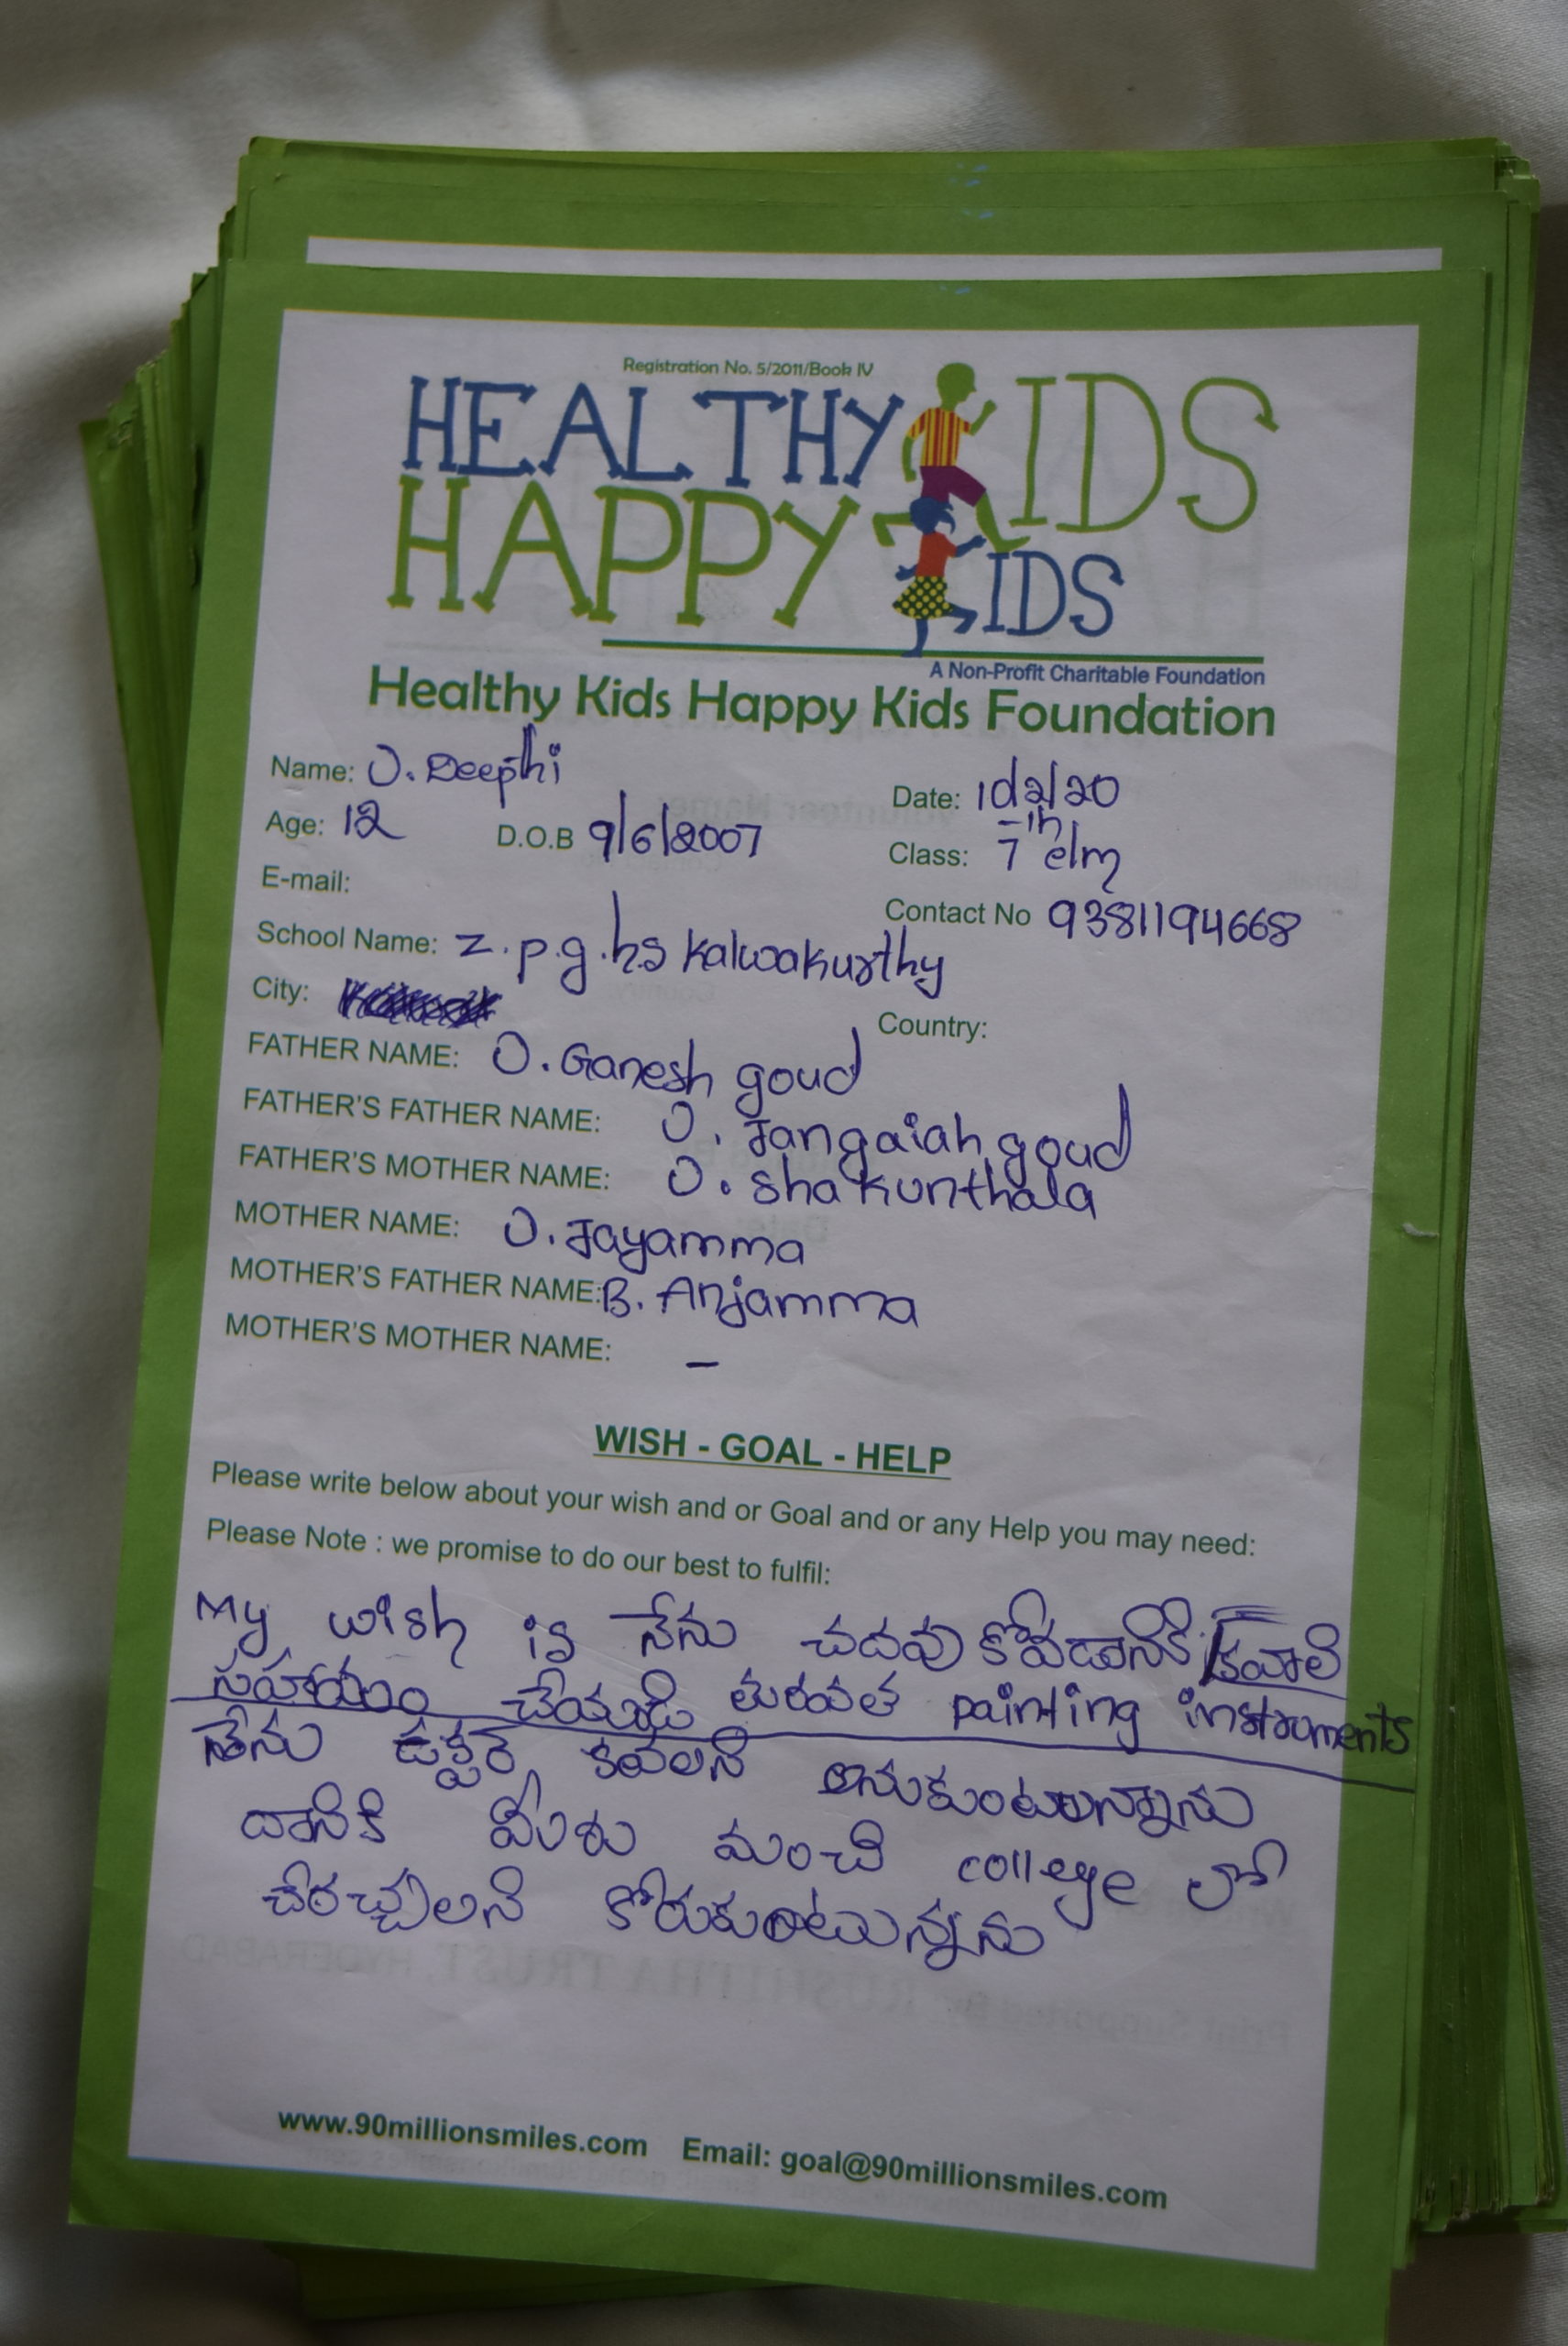 Registration No. 5/2011/Book IV
HEALTHY KIDS
HAPPY KIDS
A Non-Profit Charitable Foundation
Healthy Kids Happy Kids Foundation
Name: O. Deepthi
Date: 10/2/20
Age: 12 D.O.B 9/6/2007
Class: 7th e/m
E-mail:
Contact No 9381194668
School Name: Z.p.g.hs Kalwakurthy
City:
Country:
FATHER NAME: O. Ganesh goud
FATHER'S FATHER NAME: O. Jangaiah goud
FATHER'S MOTHER NAME: O. shakunthala
MOTHER NAME: O. Jayamma
MOTHER'S FATHER NAME: B. Anjamma
MOTHER'S MOTHER NAME: –
WISH - GOAL - HELP
Please write below about your wish and or Goal and or any Help you may need:
Please Note : we promise to do our best to fulfil:
My wish is నేను చదవు కోవడానికి కవాలి
సహాయం చేయండి తురవత painting instruments
నేను కవలని అనుకుంటున్నాను
దానికి మీరు మంచి college లో
చేరచ్చులని కోరుకుంటున్నను
www.90millionsmiles.com Email: goal@90millionsmiles.com